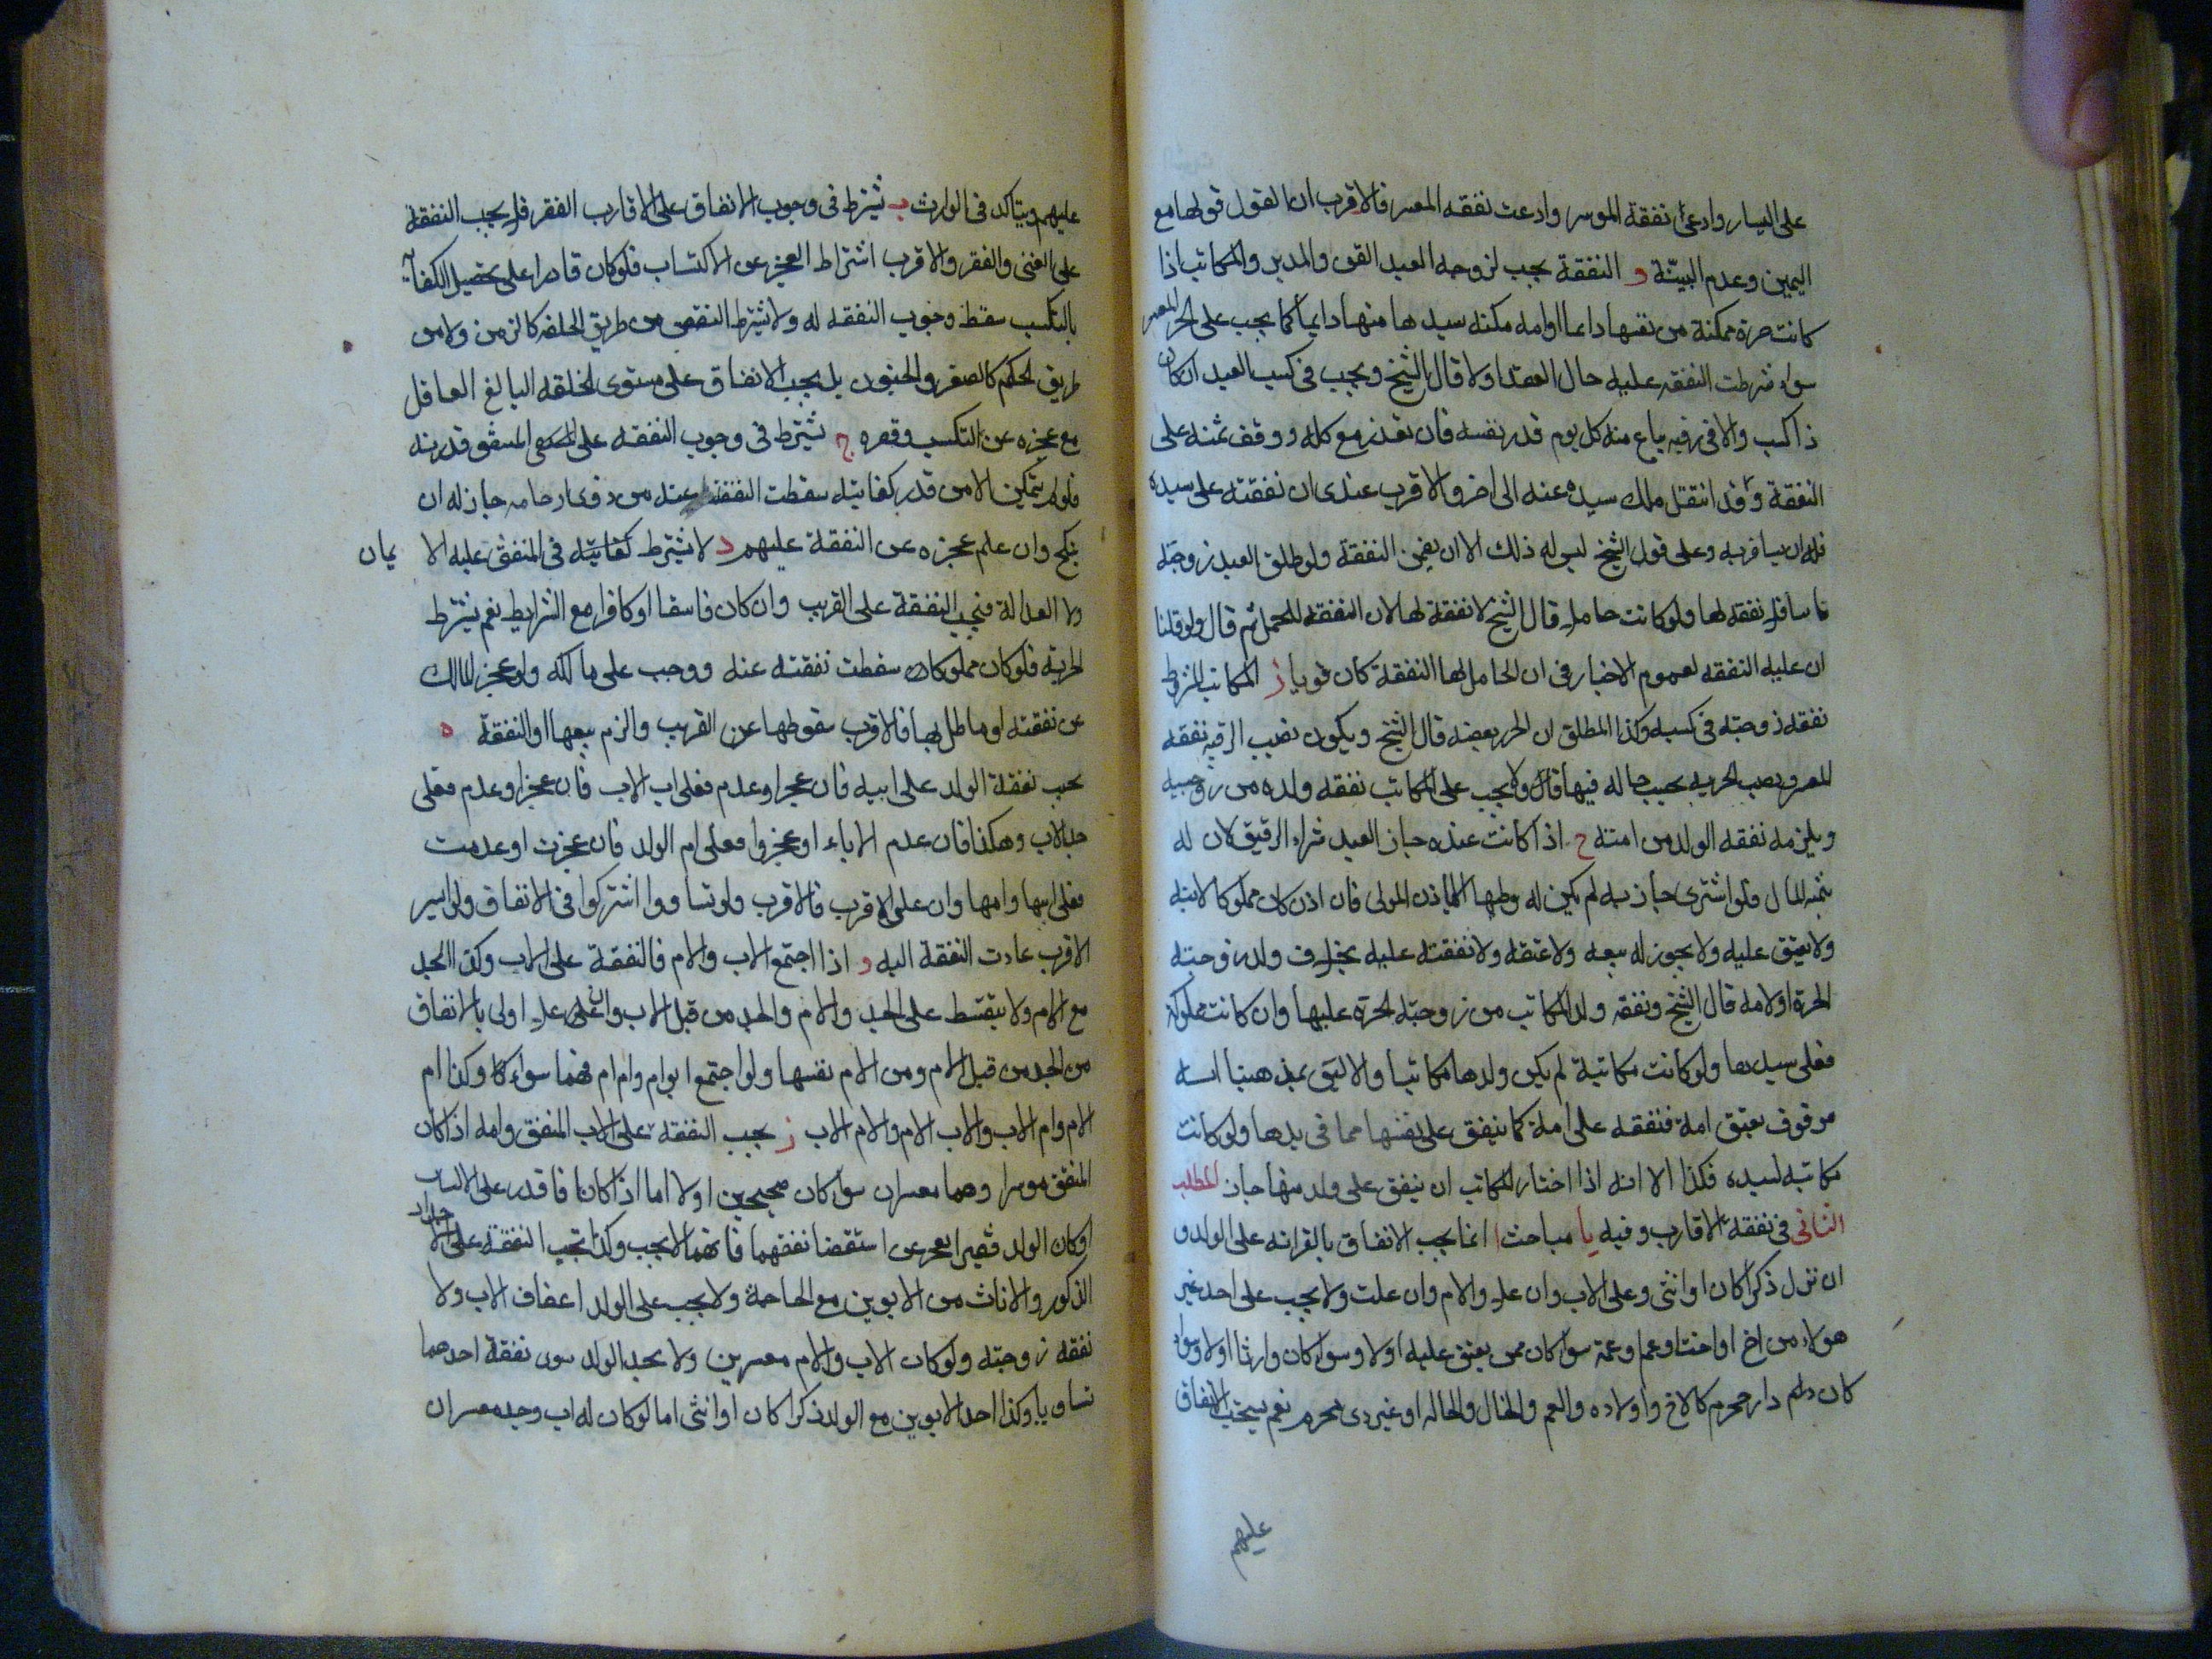 على اليسار وادعى نفقة الموسر وادعت نفقه المعسر فالاقرب ان القول قولها مع
اليمين وعدم البينة و النفقة يجب لزوجه العبد القن والمدبر والمكاتب اذا
كانت حرة ممكنة من نفسها دايما او امه مكنه سيدها منها دايما كما يجب على الحر المعسر
سواء شرطت النفقه عليه حال العقد اولا قال الشيخ ويجب فى كسب العبد ان كان
ذا كسب والا فى رقبه يباع منه كل يوم قدر نفسه فان تعذر بيع كله ووقف ثمنه على
النفقة وقد انتقل ملك سيده عنه الى اخر والاقرب عندى ان نفقته على سيده
فله ان يسافر به وعلى قول الشيخ ليس له ذلك الا ان يضمن النفقة ولو طلق العبد زوجته
باينا فلا نفقه لها ولو كانت حاملا قال الشيخ لا نفقة لها لان النفقه للحمل ثم قال ولو قلنا
ان عليه النفقه لعموم الاخبار فى ان الحامل لها النفقة كان قويا ز المكاتب المشروط
نفقه زوجته فى كسبه وكذا المطلق ان تحرر بعضه قال الشيخ ويكون نصيب الرقيه نفقه
المعسر ونصيب الحريه بحسب حاله فيها قال ولا يجب على المكاتب نفقه ولده من زوجته
ويلزمه نفقه الولد من امته ح اذا كانت عنده جاز للعبد شراء الرقيق لان له
تنميه المال فلو اشترى جاريه لم يكن له وطيها الا باذن المولى فان اذن كان مملوكا لابنه
ولا يعتق عليه ولا يجوز له بيعه ولا عتقه ولا نفقته عليه بخلاف ولد زوجته
الحرة او الامه قال الشيخ ونفقه ولد المكاتب من زوجته الحرة عليها وان كانت مملوكة
فعلى سيدها ولو كانت مكاتبة لم يكن ولدها مكاتبا والاليق بمذهبنا انه
موقوف بعتق امه فنفقه على امه كما ينفق على نفسها مما فى يدها ولو كانت
مكاتبه لسيده فكذا الا انه اذا اختار المكاتب ان ينفق على ولد منها جاز المطلب
الثانى فى نفقة الاقارب وفيه يا مباحث ا انما يجب الانفاق بالقرابه على الولد و
ان نزل ذكرا كان او انثى وعلى الاب وان علا والام وان علت ولا يجب على احد غير
هولاء من اخ او اخت او عم او عمة سواء كان ممن يعتق عليه اولا وسواء كان وارثا اولا وسواء
كان ذا رحم محرم كالاخ واولاده والعم والخال والخاله او غير ذى محرم نعم يستحب الانفاق
عليهم
عليهم ويتاكد فى الوارث ب يشترط فى وجوب الانفاق على الاقارب الفقر فلا يجب النفقة
على الغنى والفقر والاقرب اشتراط العجز عن الاكتساب فلو كان قادرا على تحصيل الكفاية
بالتكسب سقط وجوب النفقه له ولا يشترط النقص من طريق الخلقه كالزمن ولا من
طريق الحكم كالصغر والجنون بل يجب الانفاق على مستوى الخلقه البالغ العاقل
مع عجزه عن التكسب وفقره ج يشترط فى وجوب النفقه على المنفق قدرته
فلو لم يتمكن الا من قدر كفايته سقطت النفقة عنه من ذوى ارحامه جاز له ان
ينكح وان علم عجزه عن النفقة عليهم د لا يشترط كفايته فى المنفق عليه الا يمان
ولا العدالة فيجب النفقة على القريب وان كان فاسقا او كافرا مع الشرايط نعم يشترط
الحرية فلو كان مملوكا سقطت نفقته عنه ووجب على مالكه ولو عجز المالك
عن نفقته او ماطل بها فالاقرب سقوطها عن القريب والزم ببيعها او النفقة ه
يجب نفقة الولد على ابيه فان عجز او عدم فعلى اب الاب فان عجز او عدم فعلى
جد الاب وهكذا فان عدم الاباء او عجزوا فعلى ام الولد فان عجزت او عدمت
فعلى ابيها وامها وان على الاقرب فالاقرب ولو تساووا اشتركوا فى الانفاق ولو ايسر
الاقرب عادت النفقة اليه و اذا اجتمع الاب والام فالنفقة على الاب وكذا الجد
مع الام ولا يتقسط على الجد والام والجد من قبل الاب وان علا اولى بالانفاق
من الجد من قبل الام ومن الام نفسها ولو اجتمع ابو ام وام ام فهما سواء وكذا ام
الام وام الاب والاب الام والام الاب ز يجب النفقة على الاب المنفق وامه اذا كان
المنفق موسرا وهما معسران سواء كان صحيحين اولا اما اذا كانا قادر على الاكتساب
او كان الولد فقيرا يعجز عن نفقتهما فانهما لا يجب وكذا يجب النفقة على الاجداد
الذكور والاناث من الابوين مع الحاجة ولا يجب على الولد اعفاف الاب ولا
نفقه زوجته ولو كان الاب والام معسرين ولا يجد الولد سوى نفقة احدهما
تساويا وكذا احد الابوين مع الولد ذكرا كان او انثى اما لو كان له اب وجد معسران